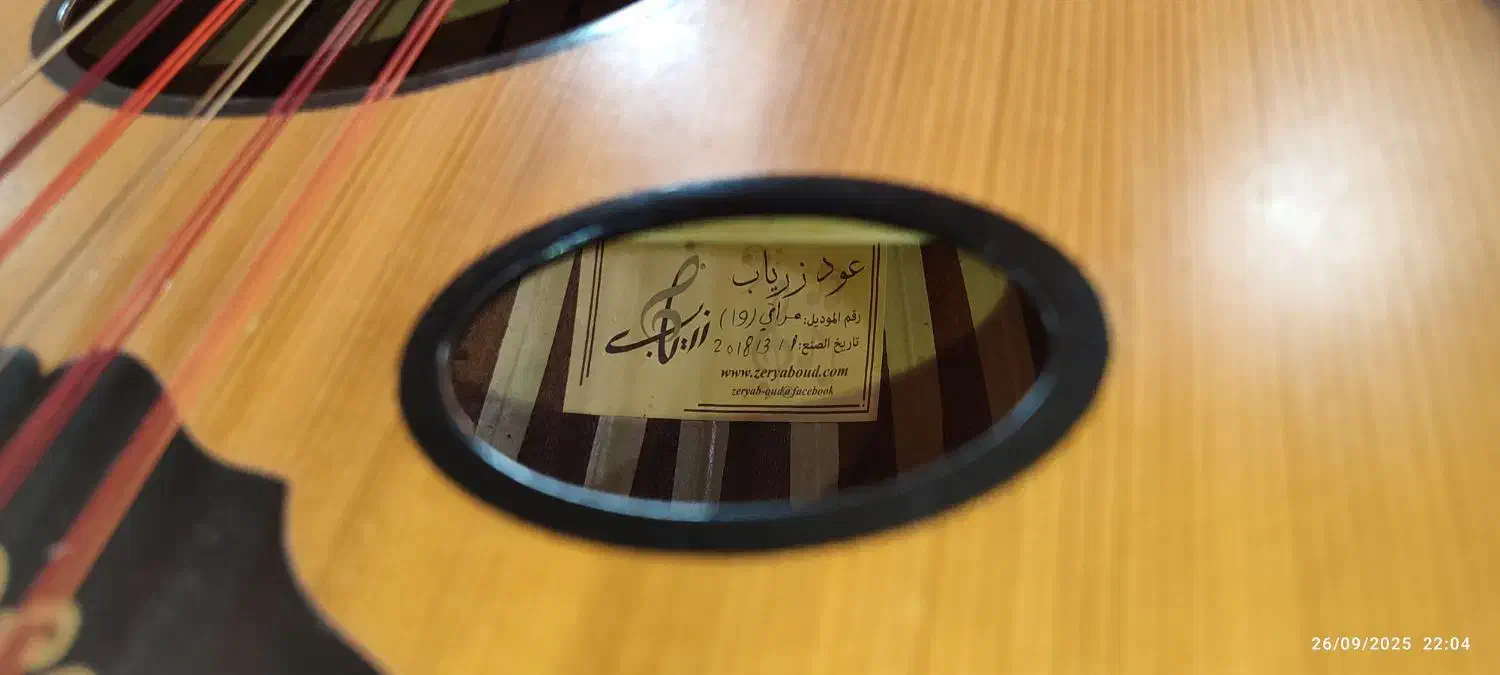 عود زرياب
زرياب
رقم الموديل: عراقي (19)
تاريخ الصنع: 2018/3/1
www.zeryaboud.com
zeryab-oud@facebook
26/09/2025 22:04